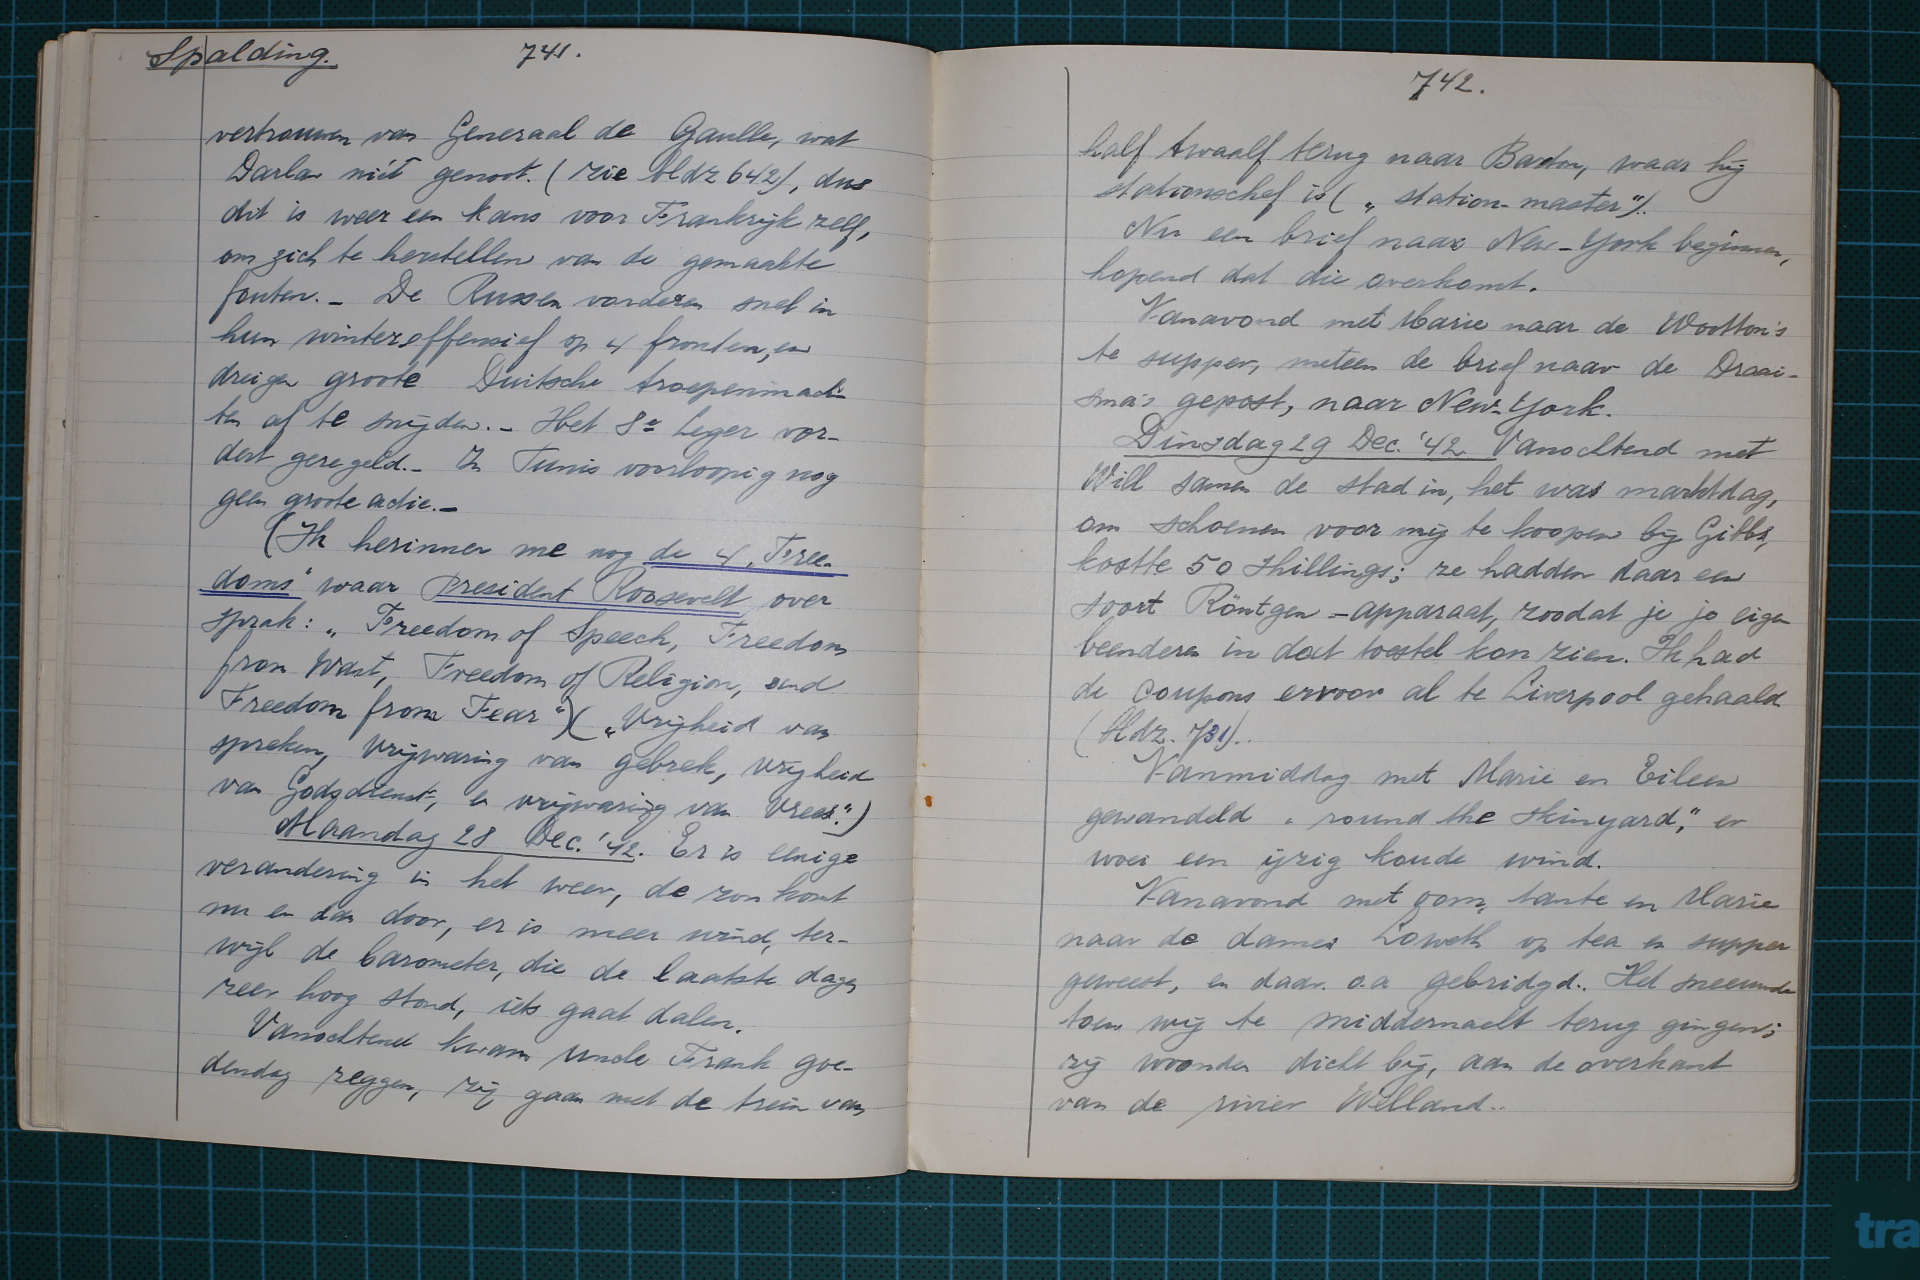 Spalding.
741.
vertrouwen van Generaal de Gaulle, wat
Darlan niet genoot. (zie bldz 642), dus
dit is weer een kans voor Frankrijk zelf,
om zich te herstellen van de gemaakte
fouten. - De Russen vorderen snel in
hun winteroffensief op 4 fronten, en
dreigen groote Duitsche troepenmach-
ten af te snijden. - Het 8e Leger vor-
dert geregeld. - In Tunis voorloopig nog
geen groote actie. -
(Ik herinner me nog de 4 „Free-
doms" waar President Roosevelt over
sprak: „Freedom of Speech, Freedom
from Want, Freedom of Religion, and
Freedom from Fear") („Vrijheid van
spreken, Vrijwaring van gebrek, vrijheid
van Godsdienst, en vrijwaring van Vrees.")
Maandag 28 Dec. '42. Er is eenige
verandering in het weer, de zon komt
nu en dan door, er is meer wind, ter-
wijl de barometer, die de laatste dagen
zeer hoog stond, iets gaat dalen.
Vanochtend kwam Uncle Frank goe-
dendag zeggen, zij gaan met de trein van
742.
half twaalf terug naar Baston, waar hij
stationschef is („station-master").
Nu een brief naar New-York beginnen,
hopend dat die overkomt.
Vanavond met Marie naar de Wootton's
te supper, meteen de brief naar de Draai-
sma's gepost, naar New-York.
Dinsdag 29 Dec. '42. Vanochtend met
Will samen de stad in, het was marktdag,
om schoenen voor mij te koopen bij Gibbs,
kostte 50 Shillings; ze hadden daar een
soort Röntgen-apparaat, zoodat je je eigen
beenderen in dat toestel kon zien. Ik had
de coupons ervoor al te Liverpool gehaald
(bldz. 731).
Vanmiddag met Marie en Eileen
gewandeld „round the Skinyard", er
woei een ijzig koude wind.
Vanavond met oom, tante en Marie
naar de dames Loweth op tea en supper
geweest, en daar o.a gebridgd. Het sneeuwde
toen wij te middernacht terug gingen;
zij woonden dicht bij, aan de overkant
van de rivier Welland.
tra